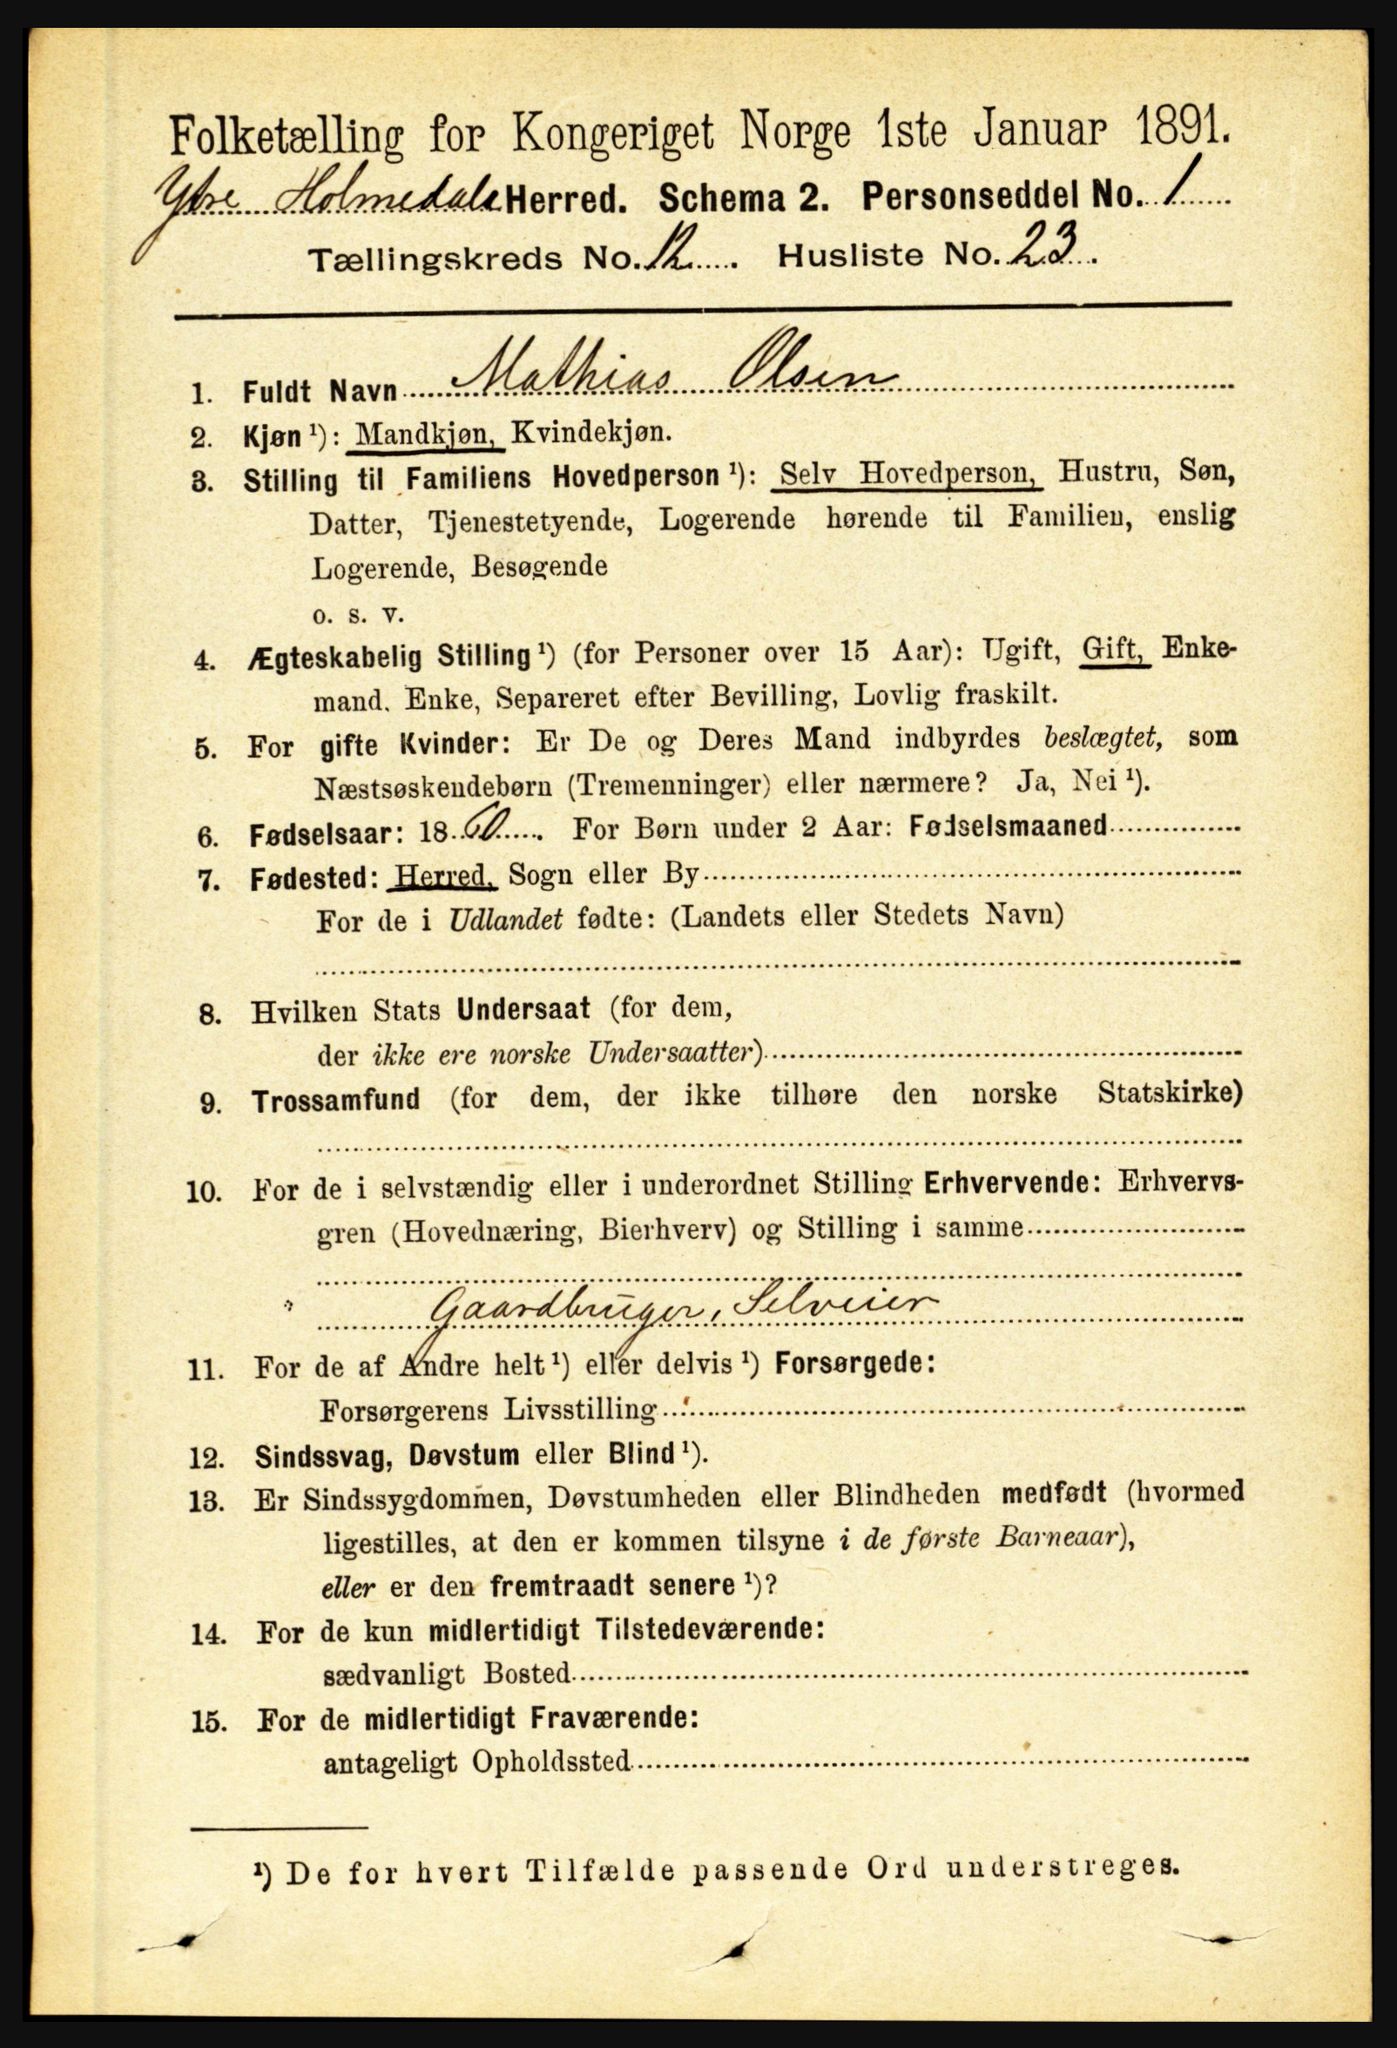 Folketælling for Kongeriget Norge 1ste Januar 1891.
Ytre Holmedals Herred. Schema 2. Personseddel No. 1
Tællingskreds No. 12. Husliste No. 23.
1. Fuldt Navn Mathias Olsen
2. Kjøn ¹): Mandkjøn, Kvindekjøn.
3. Stilling til Familiens Hovedperson ¹): Selv Hovedperson, Hustru, Søn,
Datter, Tjenestetyende, Logerende hørende til Familien, enslig
Logerende, Besøgende
o. s. v.
4. Ægteskabelig Stilling ¹) (for Personer over 15 Aar): Ugift, Gift, Enke-
mand, Enke, Separeret efter Bevilling, Lovlig fraskilt.
5. For gifte Kvinder: Er De og Deres Mand indbyrdes beslægtet, som
Næstsøskendebørn (Tremenninger) eller nærmere? Ja, Nei ¹).
6. Fødselsaar: 1860. For Børn under 2 Aar: Fødselsmaaned
7. Fødested: Herred, Sogn eller By
For de i Udlandet fødte: (Landets eller Stedets Navn)
8. Hvilken Stats Undersaat (for dem,
der ikke ere norske Undersaatter)
9. Trossamfund (for dem, der ikke tilhøre den norske Statskirke)
10. For de i selvstændig eller i underordnet Stilling Erhvervende: Erhvervs-
gren (Hovednæring, Bierhverv) og Stilling i samme
Gaardbruger, Selveier
11. For de af Andre helt ¹) eller delvis ¹) Forsørgede:
Forsørgerens Livsstilling
12. Sindssvag, Døvstum eller Blind ¹).
13. Er Sindssygdommen, Døvstumheden eller Blindheden medfødt (hvormed
ligestilles, at den er kommen tilsyne i de første Barneaar),
eller er den fremtraadt senere ¹)?
14. For de kun midlertidigt Tilstedeværende:
sædvanligt Bosted
15. For de midlertidigt Fraværende:
antageligt Opholdssted
¹) De for hvert Tilfælde passende Ord understreges.